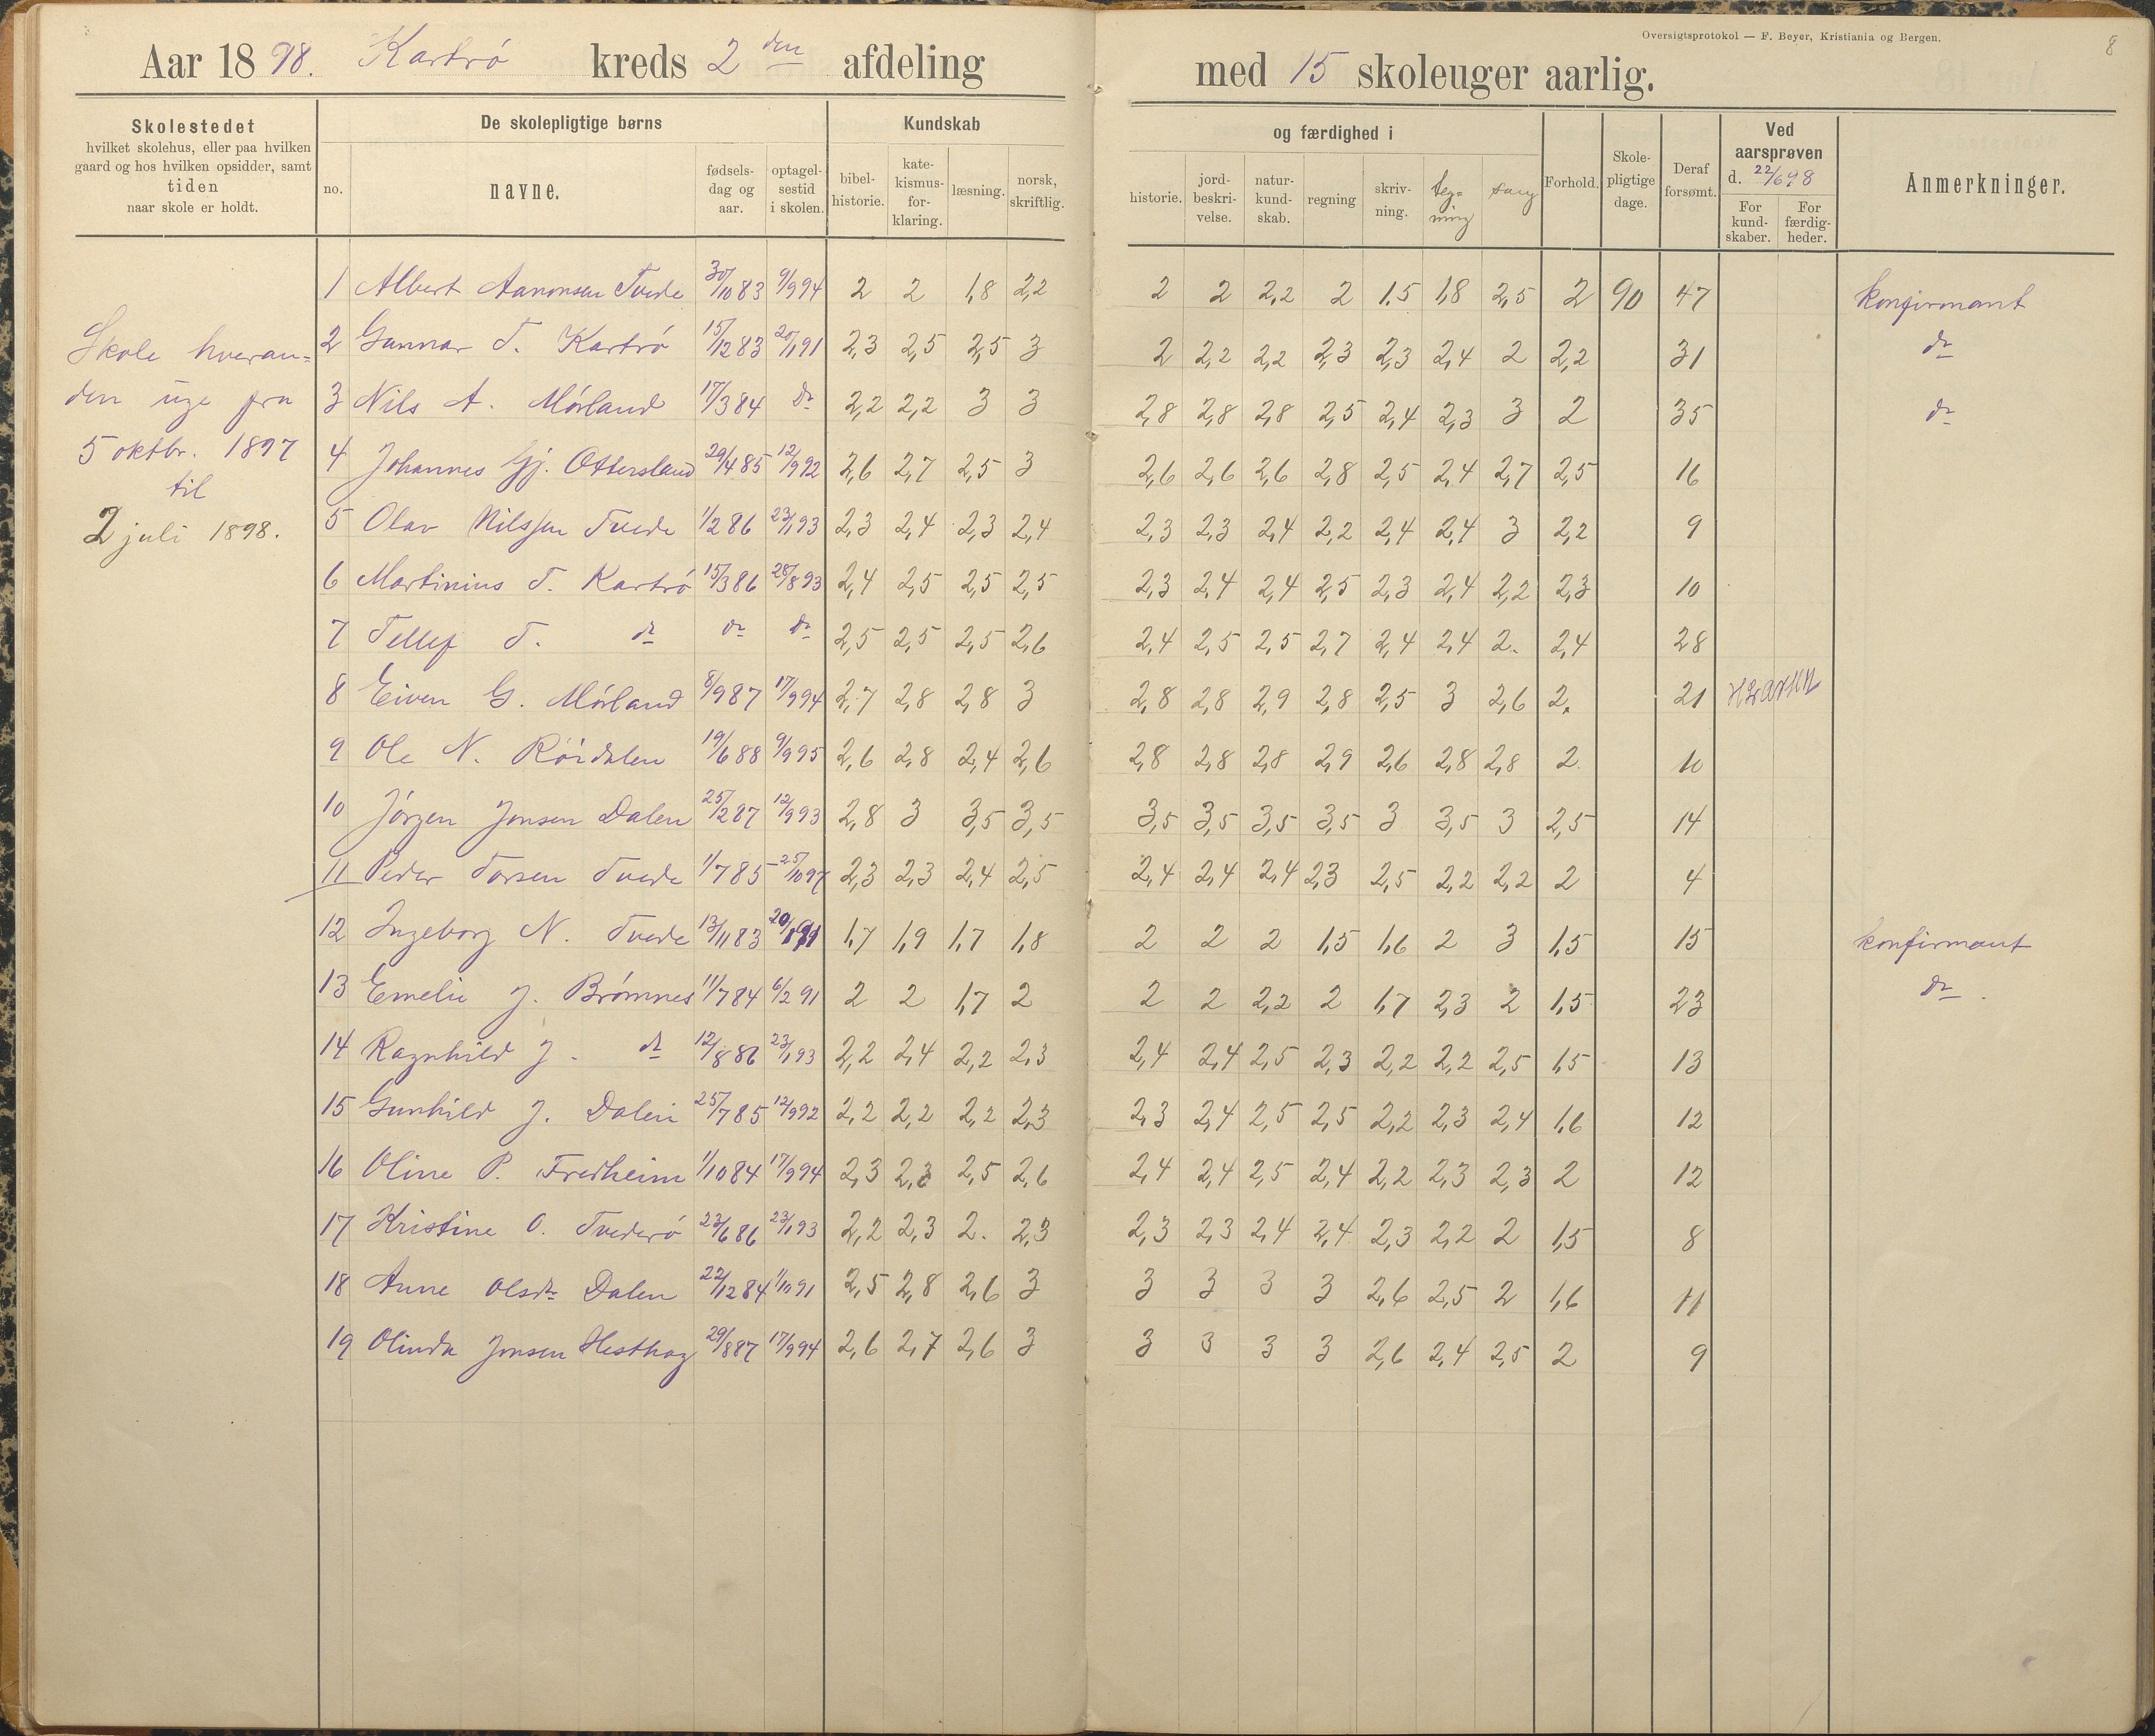 Oversigtsprotokol — F. Beyer, Kristiania og Bergen.
8
Aar 1898. Kartrø kreds 2den afdeling med 15 skoleuger aarlig.
Skolestedet hvilket skolehus, eller paa hvilken gaard og hos hvilken opsidder, samt tiden naar skole er holdt.
De skolepligtige børns
no. navne. fødselsdag og aar. optagelsestid i skolen.
Kundskab og færdighed i
bibelhistorie. katekismusforklaring. læsning. norsk, skriftlig. historie. jordbeskrivelse. naturkundskab. regning skrivning. tegning sang
Forhold. Skolepligtige dage. Deraf forsømt.
Ved aarsprøven d. 22/6 98
For kundskaber. For færdigheder.
Anmerkninger.
Skole hveran=
den uge fra
5 oktbr. 1897
til
2 juli 1898.
1 Albert Aanonsen Tvede 30/10 83 9/9 94 2 2 1,8 2,2 2 2 2,2 2 1,5 1,8 2,5 2 90 47 konfirmant
2 Gunnar T. Kartrø 15/12 83 20/1 91 2,3 2,5 2,5 3 2 2,2 2,2 2,3 2,3 2,4 2 2,2 31 do
3 Nils A. Mørland 17/3 84 do 2,2 2,2 3 3 2,8 2,8 2,8 2,5 2,4 2,3 3 2 35 do
4 Johannes Gj. Ottersland 29/4 85 12/9 92 2,6 2,7 2,5 3 2,6 2,6 2,6 2,8 2,5 2,4 2,7 2,5 16
5 Olav Nilssen Tvede 1/2 86 23/1 93 2,3 2,4 2,3 2,4 2,3 2,3 2,4 2,2 2,4 2,4 3 2,2 9
6 Martinius T. Kartrø 15/3 86 28/8 93 2,4 2,5 2,5 2,5 2,3 2,4 2,4 2,5 2,3 2,4 2,2 2,3 10
7 Tellef T. do do do 2,5 2,5 2,5 2,6 2,4 2,5 2,5 2,7 2,4 2,4 2. 2,4 28
8 Eiven G. Mørland 8/9 87 17/9 94 2,7 2,8 2,8 3 2,8 2,8 2,9 2,8 2,5 3 2,6 2. 21
9 Ole N. Røidalen 19/6 88 9/9 95 2,6 2,8 2,4 2,6 2,8 2,8 2,8 2,9 2,6 2,8 2,8 2. 10
10 Jørgen Jonsen Dalen 25/2 87 12/9 93 2,8 3 3,5 3,5 3,5 3,5 3,5 3,5 3 3,5 3 2,5 14
11 Peder Torsen Tvede 1/7 85 25/10 97 2,3 2,3 2,4 2,5 2,4 2,4 2,4 2,3 2,5 2,2 2,2 2 4
12 Ingeborg N. Tvede 13/11 83 20/1 91 1,7 1,9 1,7 1,8 2 2 2 1,5 1,6 2 3 1,5 15 konfirmant
13 Emelie J. Brømnes 11/7 84 6/2 91 2 2 1,7 2 2 2 2,2 2 1,7 2,3 2 1,5 23 do.
14 Ragnhild J. do 12/8 86 23/1 93 2,2 2,4 2,2 2,3 2,4 2,4 2,5 2,3 2,2 2,2 2,5 1,5 13
15 Gunhild J. Dalen 25/7 85 12/9 92 2,2 2,2 2,2 2,3 2,3 2,4 2,5 2,5 2,2 2,3 2,4 1,6 12
16 Oline P. Fredheim 1/10 84 17/9 94 2,3 2,3 2,5 2,6 2,4 2,4 2,5 2,4 2,2 2,3 2,3 2 12
17 Kristine O. Tvederø 23/6 86 23/1 93 2,2 2,3 2. 2,3 2,3 2,3 2,4 2,4 2,3 2,2 2 1,5 8
18 Anne Olsdr Dalen 22/12 84 1/10 91 2,5 2,8 2,6 3 3 3 3 3 2,6 2,5 2 1,6 11
19 Olinda Jonsen Hesthag 29/8 87 17/9 94 2,6 2,7 2,6 3 3 3 3 3 2,6 2,4 2,5 2 9